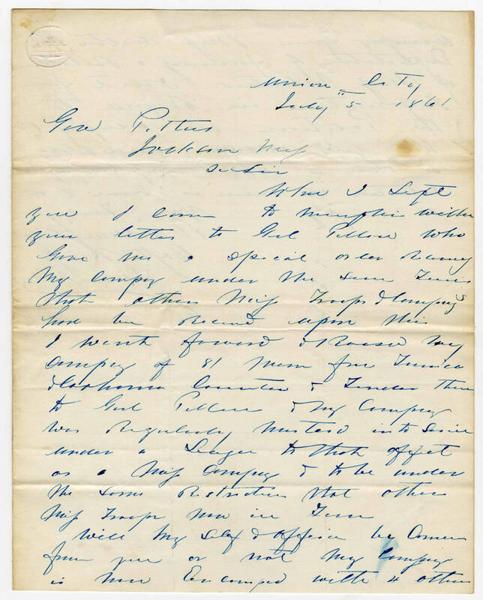 Union City
July 5th 1861
Gov Pettus
Jackson Miss
Dr Sir
When I Left
you I came to Memphis with
your letter to Genl Pillow who
Gave me a special order
My Company under the Same Terms
that other Miss Troops & Companys
have been Received upon this
I went forward & Raised My
Company of 81 Men from Tunica
& Coahoma Counties & Tendered them
to Genl Pillow & My Company
was Regularly Mustered into Service
under a to that effect
as a Miss Company & to be under
the Same Restrictions that other
Miss Troops Now in Tenn
Will My Self & Officers be Comm
from you or not My Company
is now Encamped with 4 other